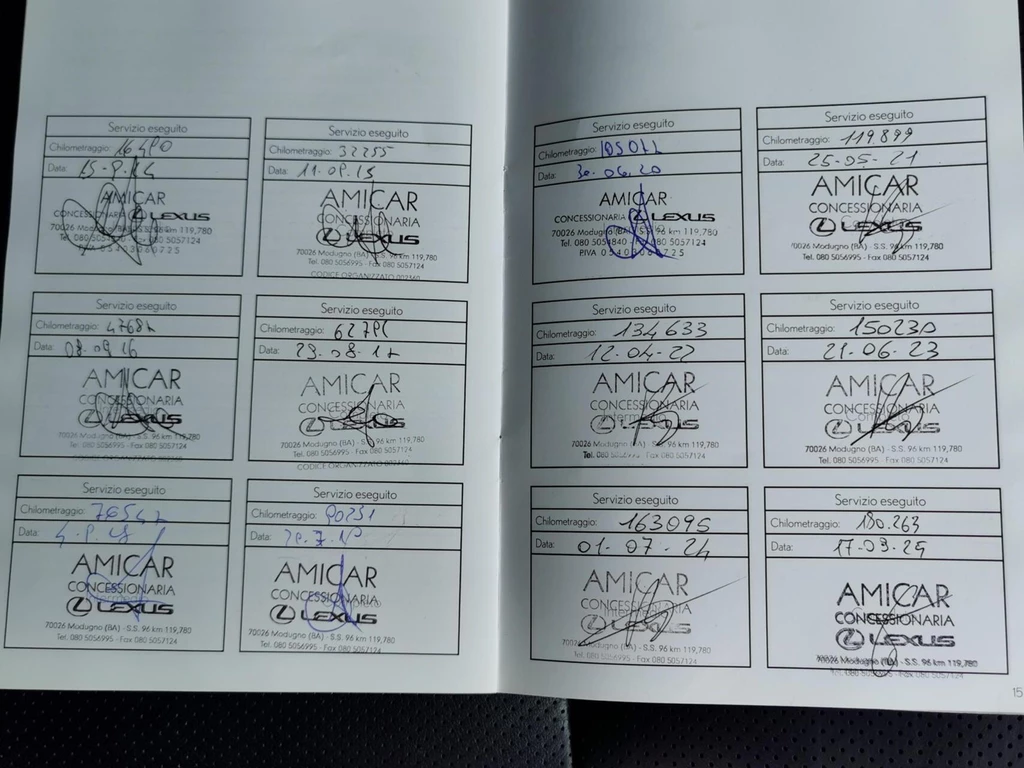 Servizio eseguito
Chilometraggio:
Data:
AMICAR
CONCESSIONARIA LEXUS
70026 Modugno (BA) - S.S. 96 km 119,780
Servizio eseguito
Chilometraggio: 32255
Data: 11.09.15
AMICAR
CONCESSIONARIA
LEXUS
70026 Modugno (BA) - S.S. 96 km 119,780
Tel. 080 5056995 - Fax 080 5057124
CODICE ORGANIZZATO
Servizio eseguito
Chilometraggio:
Data: 08.09.16
AMICAR
CONCESSIONARIA
LEXUS
70026 Modugno (BA) - S.S. 96 km 119,780
Tel. 080 5056995 - Fax 080 5057124
Servizio eseguito
Chilometraggio:
Data: 29.08.17
AMICAR
CONCESSIONARIA
LEXUS
70026 Modugno (BA) - S.S. 96 km 119,780
Tel. 080 5056995 - Fax 080 5057124
CODICE ORGANIZZATO
Servizio eseguito
Chilometraggio:
Data:
AMICAR
CONCESSIONARIA
LEXUS
70026 Modugno (BA) - S.S. 96 km 119,780
Tel. 080 5056995 - Fax 080 5057124
Servizio eseguito
Chilometraggio: 90231
Data:
AMICAR
CONCESSIONARIA
LEXUS
70026 Modugno (BA) - S.S. 96 km 119,780
Tel. 080 5056995 - Fax 080 5057124
Servizio eseguito
Chilometraggio:
Data: 30.06.20
AMICAR
CONCESSIONARIA LEXUS
70026 Modugno (BA) - S.S. 96 km 119,780
Tel. 080 5054840 - Fax 080 5057124
Servizio eseguito
Chilometraggio: 119.899
Data: 25-05-21
AMICAR
CONCESSIONARIA
LEXUS
70026 Modugno (BA) - S.S. 96 km 119,780
Tel. 080 5056995 - Fax 080 5057124
Servizio eseguito
Chilometraggio: 134633
Data: 12.04.22
AMICAR
CONCESSIONARIA
LEXUS
70026 Modugno (BA) - S.S. 96 km 119,780
Tel. 080 5056995 - Fax 080 5057124
Servizio eseguito
Chilometraggio: 150230
Data: 21.06.23
AMICAR
CONCESSIONARIA
LEXUS
70026 Modugno (BA) - S.S. 96 km 119,780
Tel. 080 5056995 - Fax 080 5057124
Servizio eseguito
Chilometraggio: 163095
Data: 01.07.24
AMICAR
CONCESSIONARIA
LEXUS
70026 Modugno (BA) - S.S. 96 km 119,780
Tel. 080 5056995 - Fax 080 5057124
Servizio eseguito
Chilometraggio: 180.263
Data: 17-09-25
AMICAR
CONCESSIONARIA
LEXUS
70026 Modugno (BA) - S.S. 96 km 119,780
Tel. 080 5056995 - Fax 080 5057124
15